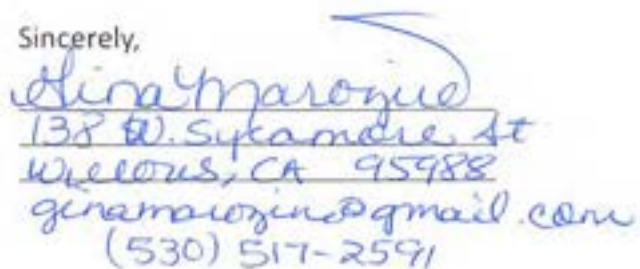 Sincerely,
Gina Marozin
138 W. Sycamore St
Willows, CA 95988
ginamarozin@gmail.com
(530) 517-2591